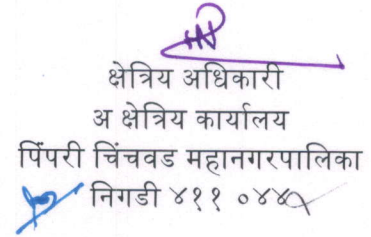 क्षेत्रिय अधिकारी
अ क्षेत्रिय कार्यालय
पिंपरी चिंचवड महानगरपालिका
निगडी ४११ ०४४